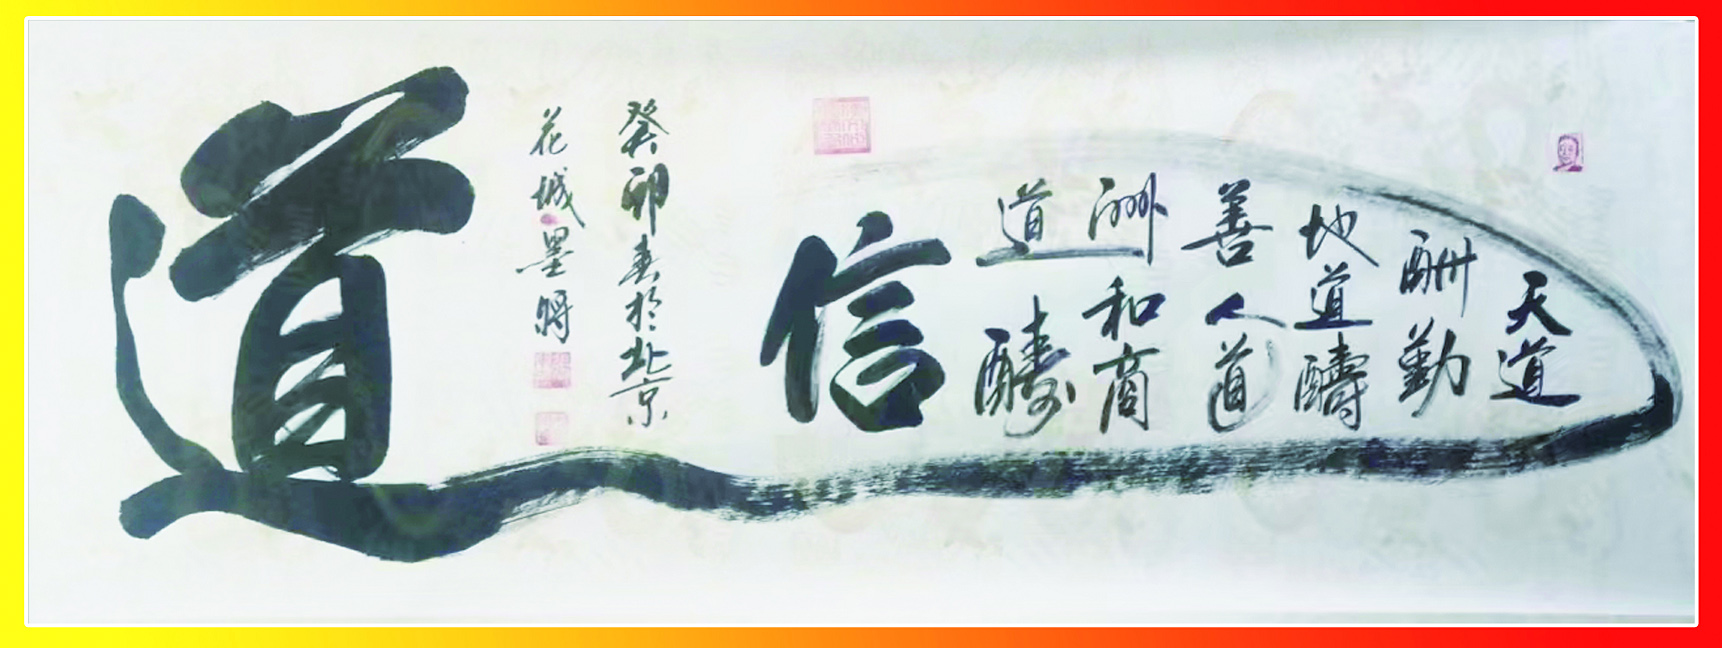 天道
酬勤
地道醻
善人道
酬和商
道醻
信
癸卯春於北京
花城墨將
道